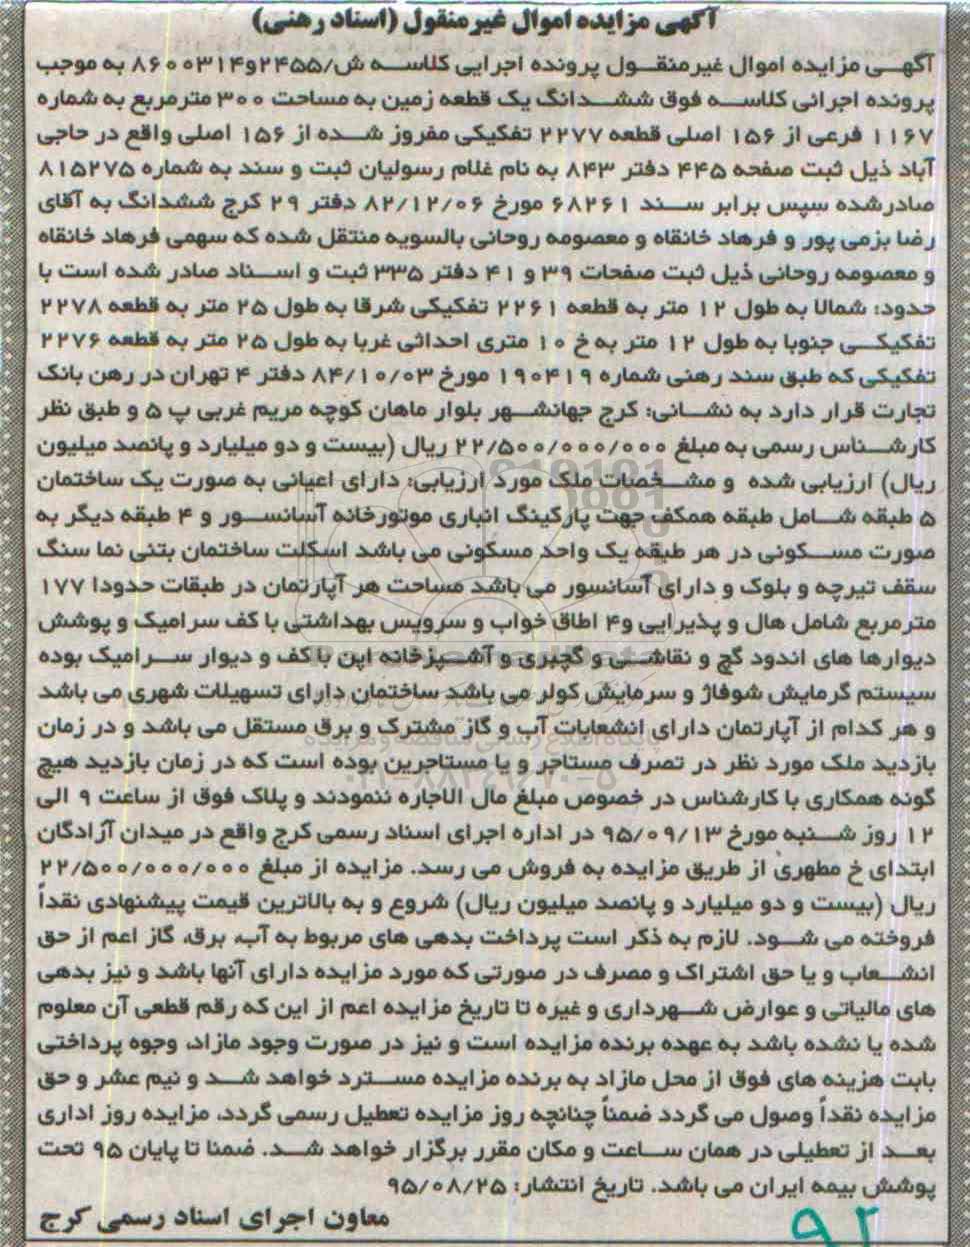 آگهی مزایده اموال غیرمنقول (اسناد رهنی)
آگهی مزایده اموال غیرمنقول پرونده اجرایی کلاسه ش/۲۴۵۵و۸۶۰۰۳۱۴ به موجب
پرونده اجرائی کلاسه فوق ششدانگ یک قطعه زمین به مساحت ۳۰۰ مترمربع به شماره
۱۱۶۷ فرعی از ۱۵۶ اصلی قطعه ۲۲۷۷ تفکیکی مفروز شده از ۱۵۶ اصلی واقع در حاجی
آباد ذیل ثبت صفحه ۴۴۵ دفتر ۸۴۳ به نام غلام رسولیان ثبت و سند به شماره ۸۱۵۲۷۵
صادرشده سپس برابر سند ۶۸۲۶۱ مورخ ۸۲/۱۲/۰۶ دفتر ۲۹ کرج ششدانگ به آقای
رضا بزمی پور و فرهاد خانقاه و معصومه روحانی بالسویه منتقل شده که سهمی فرهاد خانقاه
و معصومه روحانی ذیل ثبت صفحات ۳۹ و ۴۱ دفتر ۳۳۵ ثبت و اسناد صادر شده است با
حدود: شمالا به طول ۱۲ متر به قطعه ۲۲۶۱ تفکیکی شرقا به طول ۲۵ متر به قطعه ۲۲۷۸
تفکیکی جنوبا به طول ۱۲ متر به خ ۱۰ متری احداثی غربا به طول ۲۵ متر به قطعه ۲۲۷۶
تفکیکی که طبق سند رهنی شماره ۱۹۰۴۱۹ مورخ ۸۴/۱۰/۰۳ دفتر ۴ تهران در رهن بانک
تجارت قرار دارد به نشانی: کرج جهانشهر بلوار ماهان کوچه مریم غربی پ ۵ و طبق نظر
کارشناس رسمی به مبلغ ۲۲/۵۰۰/۰۰۰/۰۰۰ ریال (بیست و دو میلیارد و پانصد میلیون
ریال) ارزیابی شده و مشخصات ملک مورد ارزیابی: دارای اعیانی به صورت یک ساختمان
۵ طبقه شامل طبقه همکف جهت پارکینگ انباری موتورخانه آسانسور و ۴ طبقه دیگر به
صورت مسکونی در هر طبقه یک واحد مسکونی می باشد اسکلت ساختمان بتنی نما سنگ
سقف تیرچه و بلوک و دارای آسانسور می باشد مساحت هر آپارتمان در طبقات حدودا ۱۷۷
مترمربع شامل هال و پذیرایی و۴ اطاق خواب و سرویس بهداشتی با کف سرامیک و پوشش
دیوارها های اندود گچ و نقاشی و گچبری و آشپزخانه اپن با کف و دیوار سرامیک بوده
سیستم گرمایش شوفاژ و سرمایش کولر می باشد ساختمان دارای تسهیلات شهری می باشد
و هر کدام از آپارتمان دارای انشعابات آب و گاز مشترک و برق مستقل می باشد و در زمان
بازدید ملک مورد نظر در تصرف مستاجر و یا مستاجرین بوده است که در زمان بازدید هیچ
گونه همکاری با کارشناس در خصوص مبلغ مال الاجاره ننمودند و پلاک فوق از ساعت ۹ الی
۱۲ روز شنبه مورخ ۹۵/۰۹/۱۳ در اداره اجرای اسناد رسمی کرج واقع در میدان آزادگان
ابتدای خ مطهری از طریق مزایده به فروش می رسد. مزایده از مبلغ ۲۲/۵۰۰/۰۰۰/۰۰۰
ریال (بیست و دو میلیارد و پانصد میلیون ریال) شروع و به بالاترین قیمت پیشنهادی نقداً
فروخته می شود. لازم به ذکر است پرداخت بدهی های مربوط به آب، برق، گاز اعم از حق
انشعاب و یا حق اشتراک و مصرف در صورتی که مورد مزایده دارای آنها باشد و نیز بدهی
های مالیاتی و عوارض شهرداری و غیره تا تاریخ مزایده اعم از این که رقم قطعی آن معلوم
شده یا نشده باشد به عهده برنده مزایده است و نیز در صورت وجود مازاد، وجوه پرداختی
بابت هزینه های فوق از محل مازاد به برنده مزایده مسترد خواهد شد و نیم عشر و حق
مزایده نقداً وصول می گردد ضمناً چنانچه روز مزایده تعطیل رسمی گردد، مزایده روز اداری
بعد از تعطیلی در همان ساعت و مکان مقرر برگزار خواهد شد. ضمنا تا پایان ۹۵ تحت
پوشش بیمه ایران می باشد. تاریخ انتشار: ۹۵/۰۸/۲۵
معاون اجرای اسناد رسمی کرج
۹۲